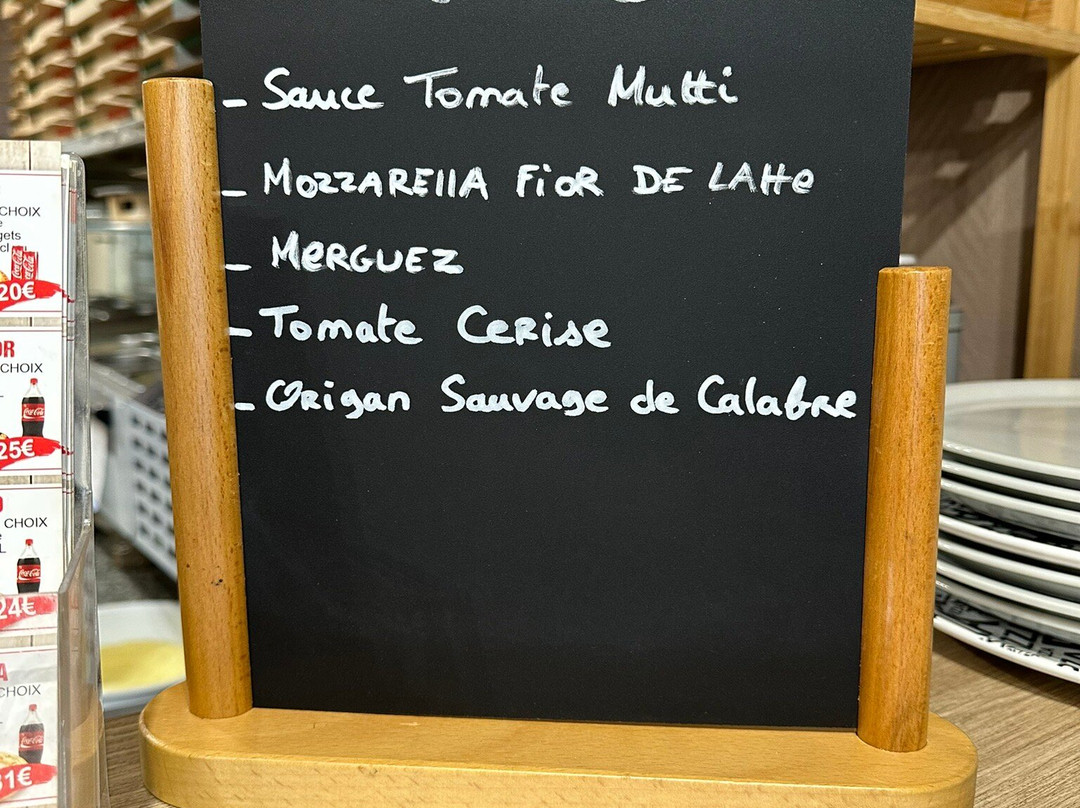 - Sauce Tomate Mutti
- MOZZARELLA FiOR DE LATTe
- MeRGUEZ
- Tomate CeRise
- Origan Sauvage de Calabre
CHOIX
20€
CHOIX
Coca-Cola
25€
CHOIX
Coca-Cola
24€
CHOIX
31€